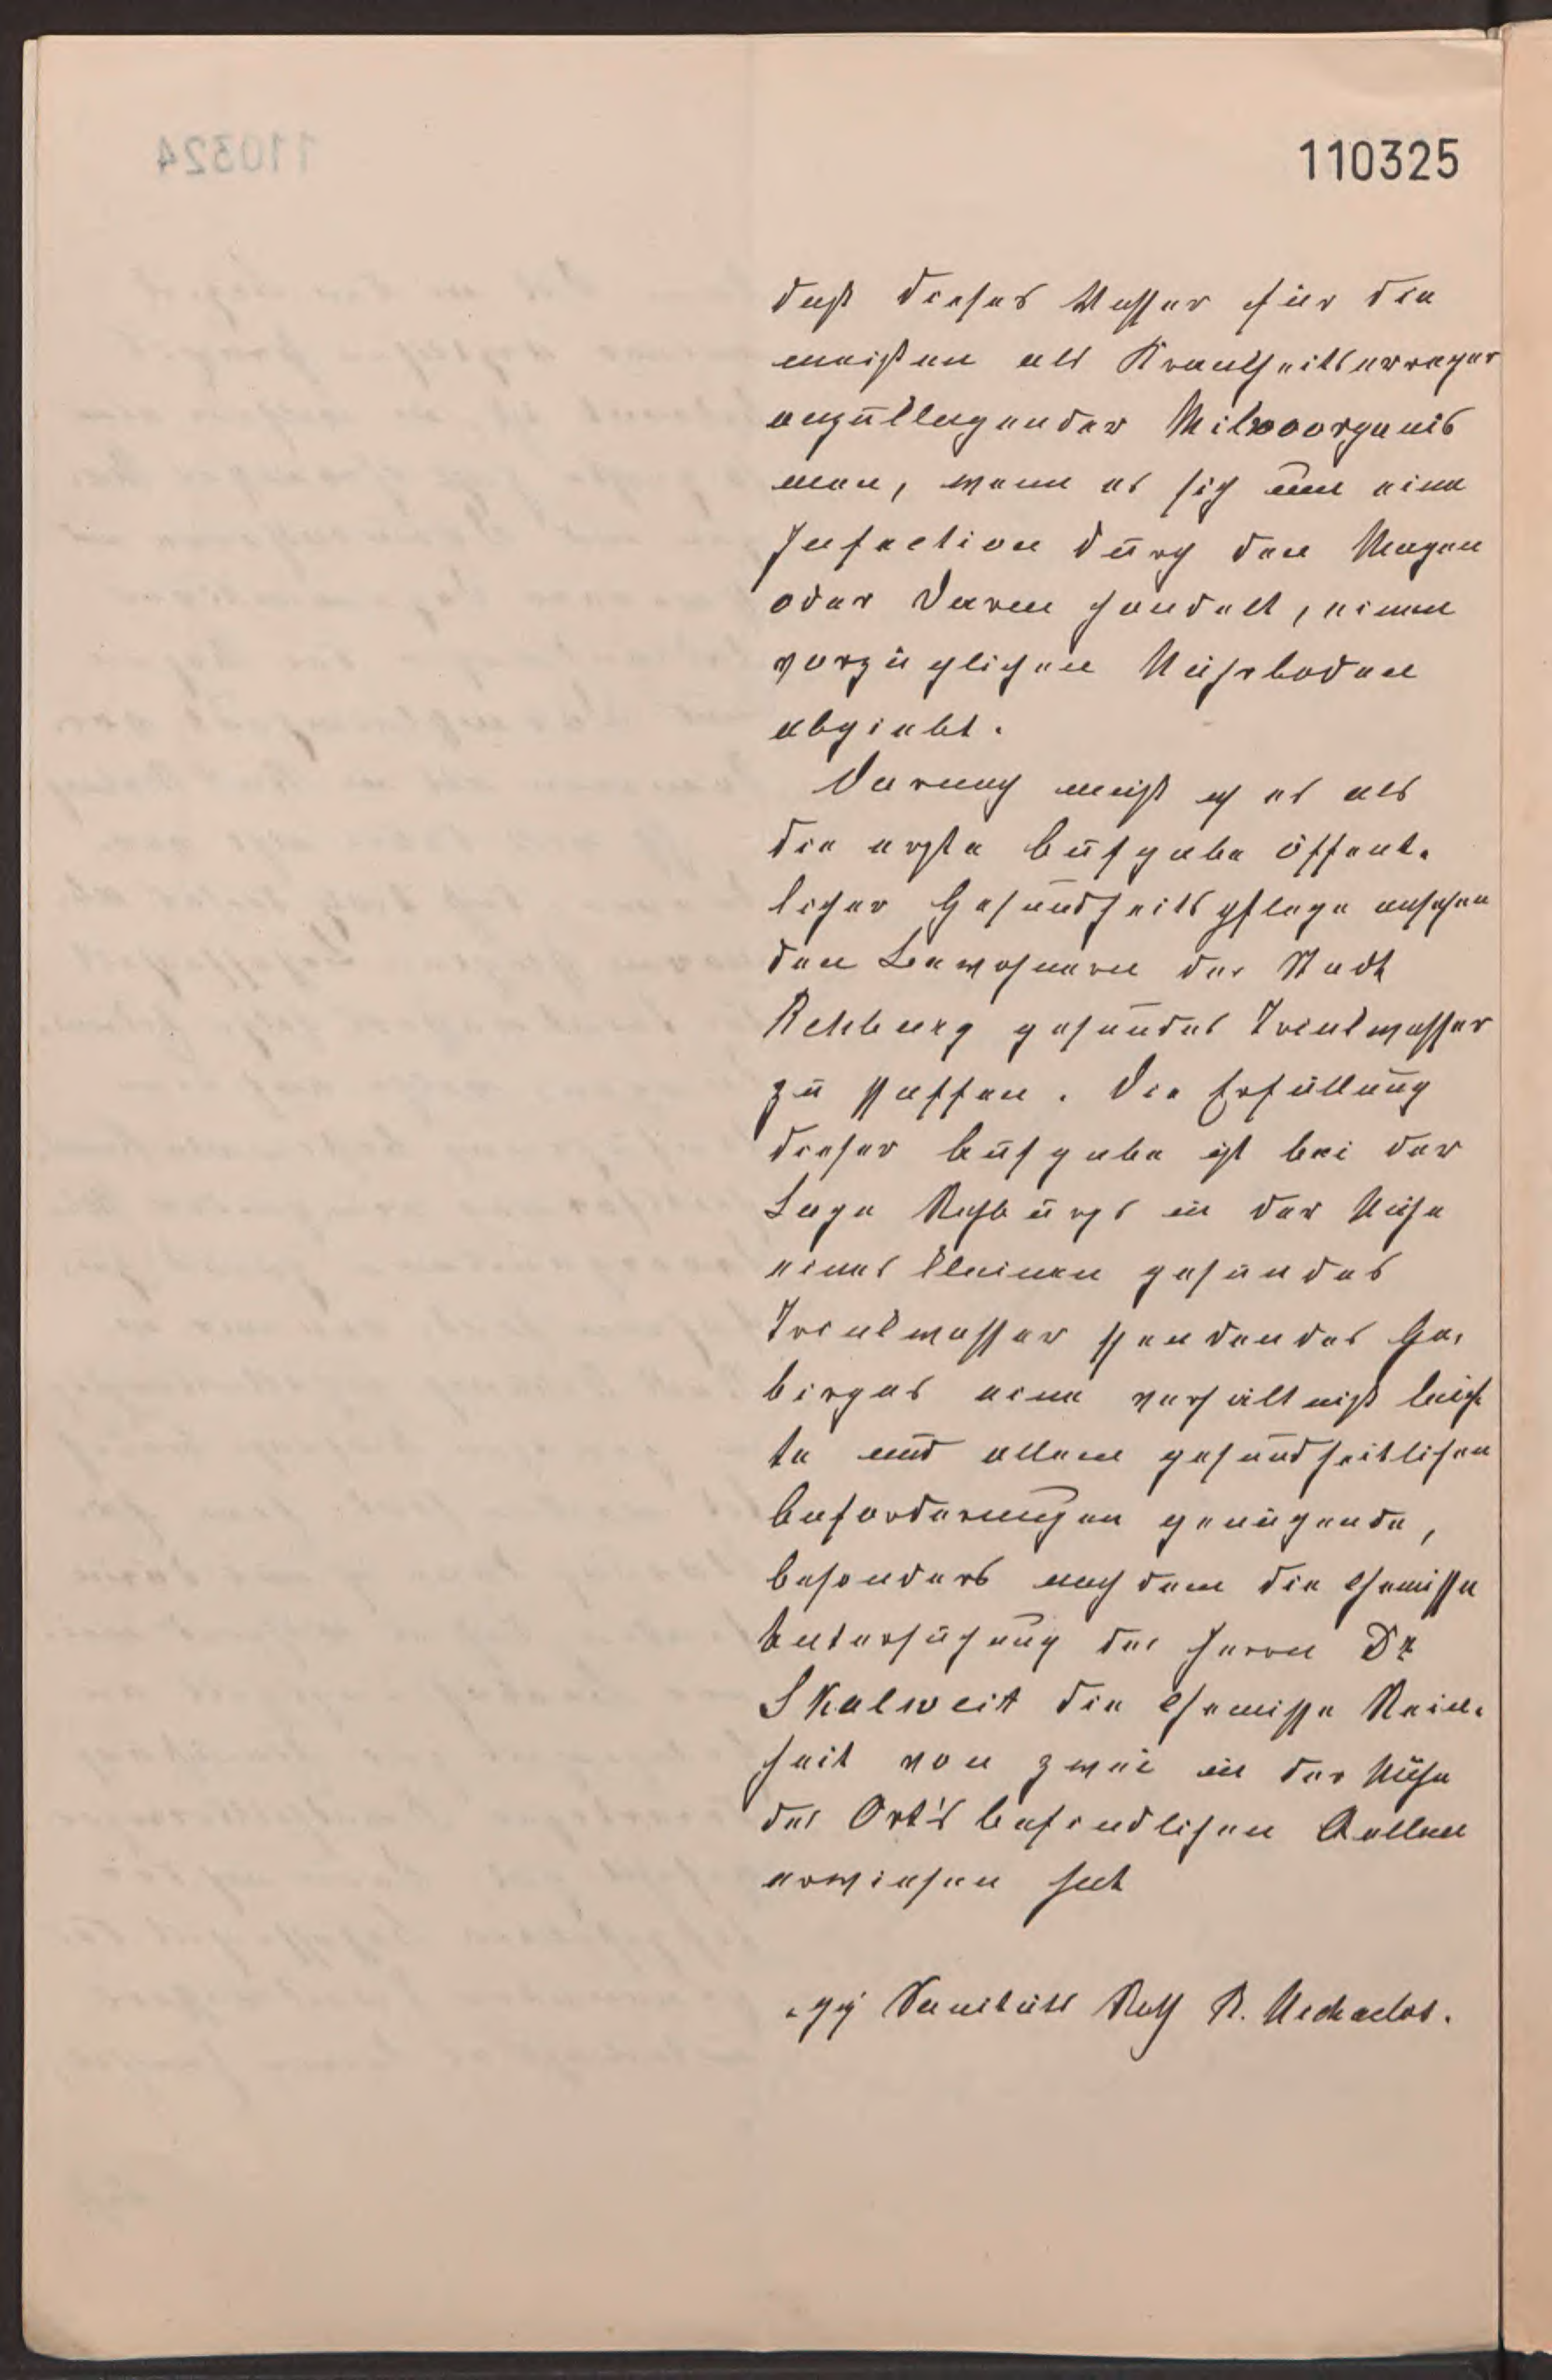 110325
daß dieses Wasser für die
meisten als Krankheitserreger
anzuklagender Mikroorganis
men, wenn es sich um eine
Infection durch den Magen
oder Darm handelt, einen
vorzüglichen Nährboden
abgiebt.
Darnach muß ich es als
die erste Aufgabe öffent-
licher Gesundheitspflege ansehen
den Bewohnern der Stadt
Rehburg gesundes Trinkwasser
zu schaffen. Die Erfüllung
dieser Aufgabe ist bei der
Lage Rehburgs in der Nähe
eines kleinen gesundes
Trinkwasser spendendes Ge-
birges eine verhältniß leich
te und allen gesundheitlichen
Anforderungen genügende,
besonders nachdem die chemische
Untersuchung des Herrn Dr
Skalweit die chemische Rein-
heit von zwei in der Nähe
des Ort's befindlichen Quellen
erwiesen hat
gez Sanitäts Rath R. Michaelis.
110324